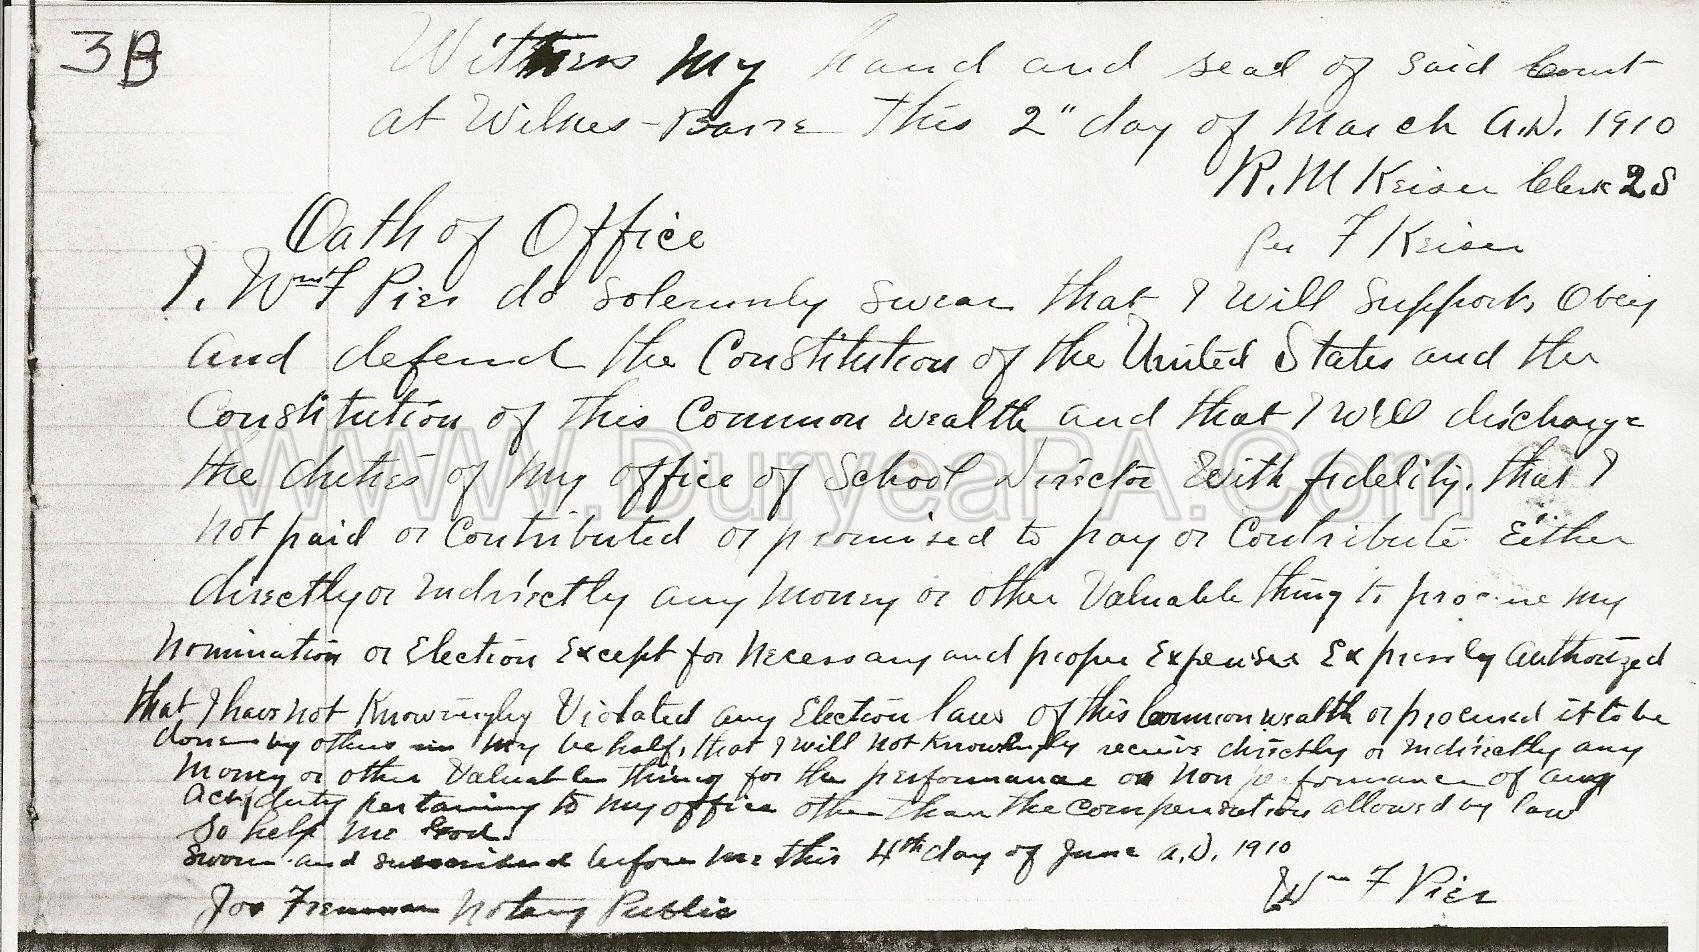 3B
Witness my hand and seal of said Court
at Wilkes-Barre this 2" day of March A.D. 1910
R. M Keiser Clerk 2S
per F Keiser
Oath of Office
I. Wm F Pier do solemnly swear that I will support, obey
and defend the Constitution of the United States and the
Constitution of this Common wealth and that I will discharge
the duties of my office of School Director With fidelity. that I
not paid or Contributed or promised to pay or Contribute Either
directly or indirectly any money or other Valuable thing to procure my
nomination or Election Except for necessary and proper Expenses Expressly authorized
that I have not Knowingly Violated any Election laws of this Common wealth or procured it to be
done by others in my behalf, that I will not knowingly receive directly or indirectly any
money or other Valuable thing for the performance or non performance of any
act/duty pertaining to my office other than the compensation allowed by law
So help me God.
Sworn and subscribed before me this 4th day of June A.D. 1910
Wm F Pier
Jos Notary Public
WWW.DuryeaPA.Com